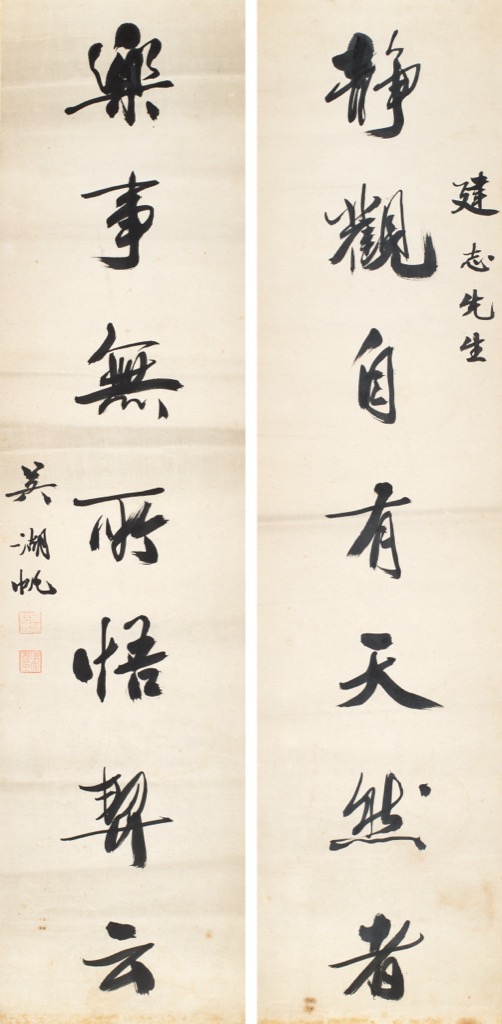 建志先生
静觀自有天然者
樂事無所悟契云
吳湖帆